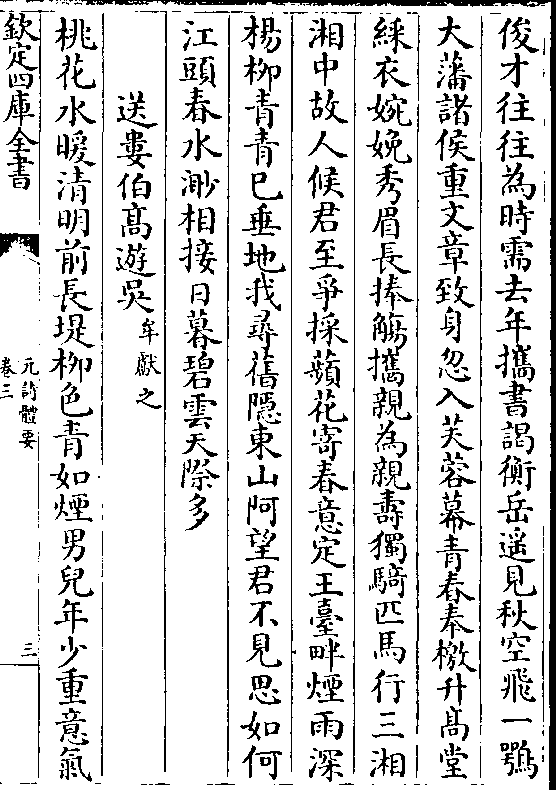 俊才往往為時需去年攜書謁衡岳遥見秋空飛一鶚
大藩諸侯重文章致身忽入芙蓉幕青春奉檄升髙堂
綵衣婉娩秀眉長捧觴攜親為親壽獨騎匹馬行三湘
湘中故人候君至爭採蘋花寄春意定王臺畔煙雨深
楊柳青青已垂地我尋舊隠東山阿望君不見思如何
江頭春水渺相接日暮碧雲天際多
送婁伯髙遊吳 牟獻之
桃花水暖清明前長堤柳色青如煙男兒年少重意氣
欽定四庫全書
元詩體要
卷三
三